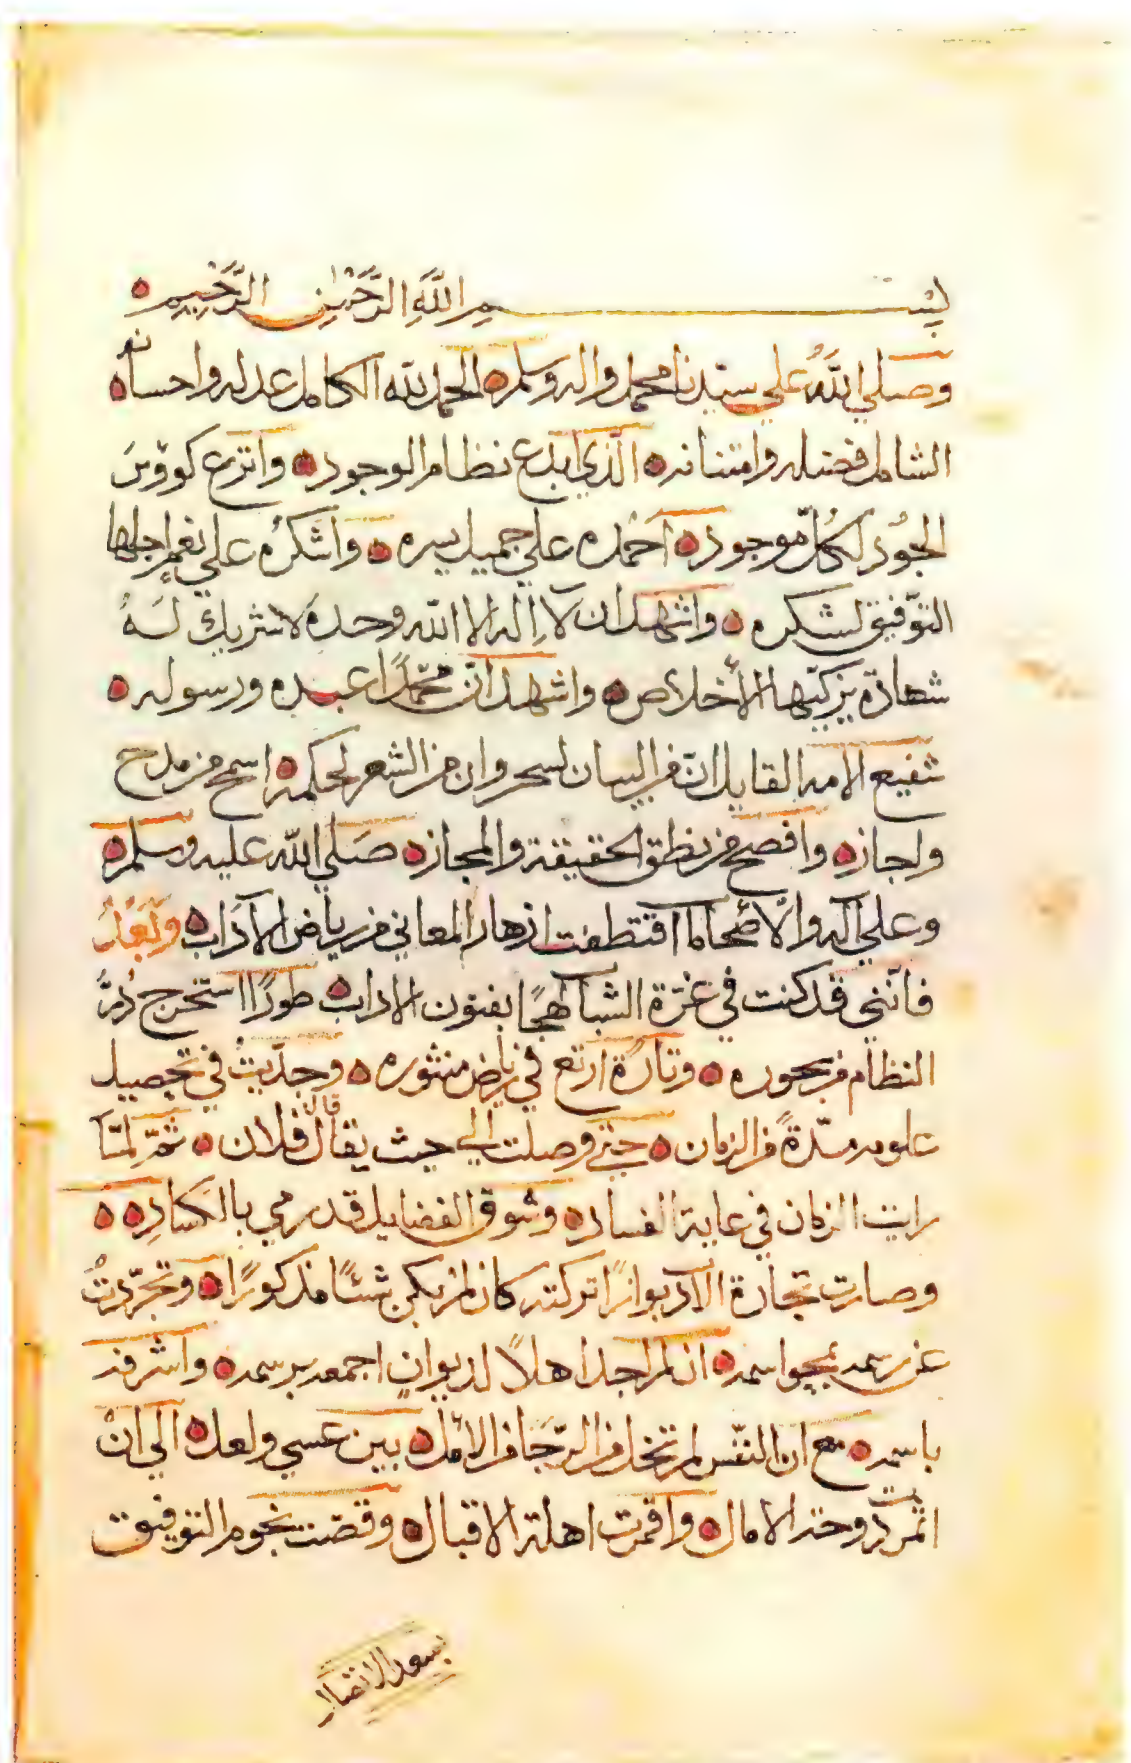 بســـم الله الرَّحمٰن الرَّحيم ه
وصلي اللهُ علي سيدنا محمد واله وسلم ه الحمد لله الكامل عدله واحسانه
الشامل فضله وامتنانه ه الذي ابدع نظام الوجود ه واترع كووس
الجُود لكُلّ موجود ه احمده علي جميل بره ه واشكرُه علي نعمٍ اجلها
التوّفيق لشكره ه واشهد ان لا اِله الا الله وحدهُ لا شريك لهُ
شهادة يزكيّها الأخلاص ه واشهد انّ محمّداً عبده ورسوله ه
شفيع الامه القايل انّ من البيان لسحر وان من الشعر لحكمة ه اسمح من مدح
واجاز ه وافصح من نطق بالحقيقة والمجاز ه صَلي الله عليه وسلم ه
وعلي آله والأصحاب ما اقتطفت ازهار المعاني من رياض الآدَاب ه وَبَعْدُ
فانّني قد كنت في غرّة الشباب لهجًا بفنون الاداب ه طورًا استخرج دُرَّ
النظام من بحوره ه وتارةً ارتع في رياض منثوره ه وجدّيتُ في تحصيل
علومه مدّةً من الزمان ه حتي وصلت الي حيث يقال قال فلان ه ثمّ لمّا
رايت الزمان في غاية الفساد ه وسُوق الفضايل قد رمي بالكَسادِ ه ه
وصارت تجارة الآدب بوارًا تركته كان لم يكن شئًا مذكورًا ه وتجرّدتُ
عن رسمه بمحو اسمه ه اذ لم اجد اهلاً لديوانٍ اجمعه برسمه ه واشرفه
باسمه ه مع ان النفّس لم تخل من الرّجَا من الأمل ه بين عسي ولعل ه الي انْ
اثمرت دوحة الامال ه واقمرت اهلة الاقبال ه وقضت نجوم التوفيق
بسعد الاتصال